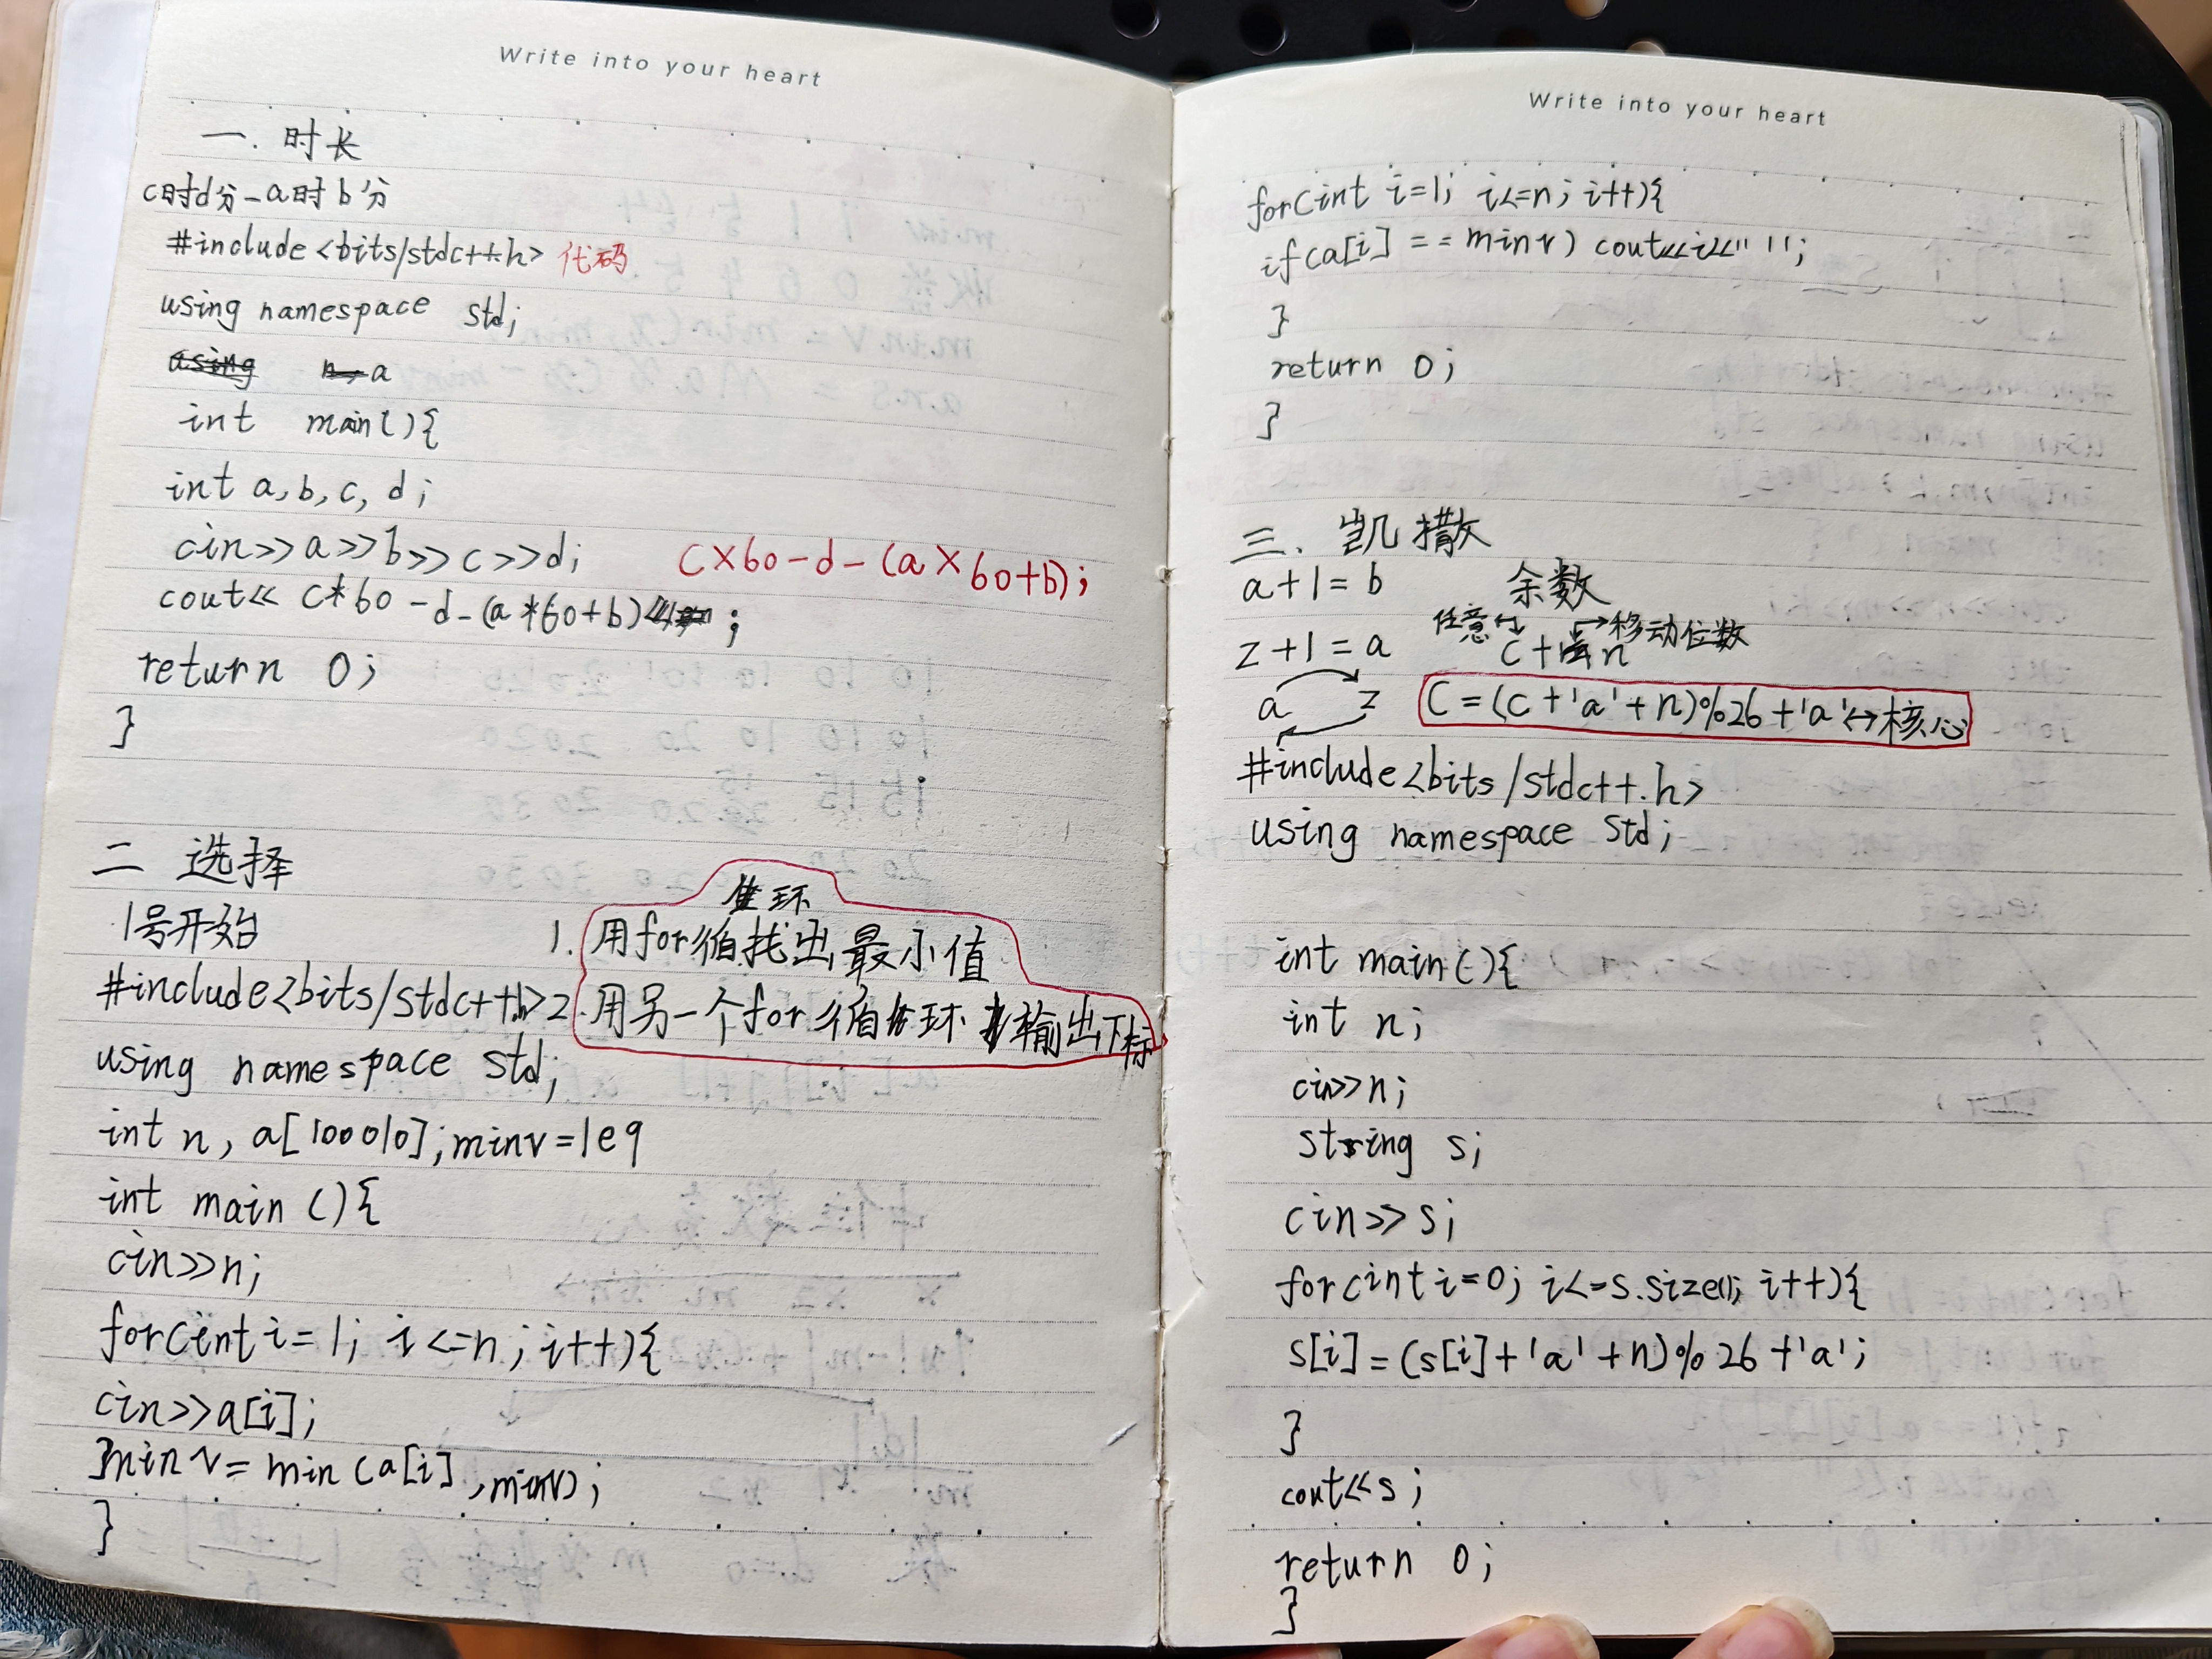 Write into your heart
一. 时长
c时d分-a时b分
#include<bits/stdc++.h> 代码
using namespace std;
a
int main(){
int a,b,c,d;
cin>>a>>b>>c>>d; C×60-d-(a×60+b);
cout<<c*60-d-(a*60+b);
return 0;
}
二 选择
1号开始
环
1. 用for循找出最小值
#include<bits/stdc++.h> 2.用另一个for循环输出下标
using namespace std;
int n, a[10010];minv=1e9
int main(){
cin>>n;
for(int i=1; i<=n; i++){
cin>>a[i];
}minv=min(a[i],minv);
}
Write into your heart
for(int i=1; i<=n; i++){
if(a[i]==minv) cout<<i<<" ";
}
return 0;
}
三. 凯撒
a+1=b 余数
任意 移动位数
z+1=a c+n
a z C=(c+'a'+n)%26+'a'↔核心
#include<bits/stdc++.h>
using namespace std;
int main(){
int n;
cin>>n;
string s;
cin>>s;
for(int i=0; i<=s.size(); i++){
s[i]=(s[i]+'a'+n)%26+'a';
}
cout<<s;
return 0;
}